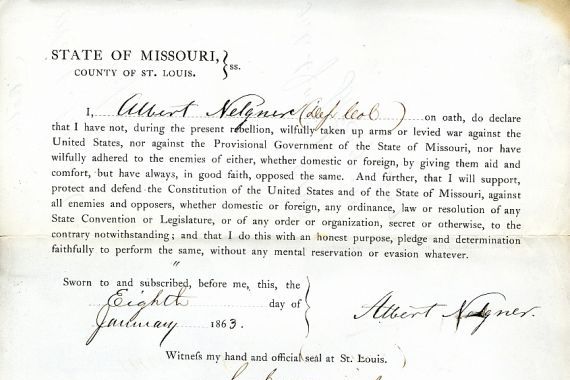 STATE OF MISSOURI, } ss.
COUNTY OF ST. LOUIS.
I, Albert Nelgner (Dep Col ) on oath, do declare
that I have not, during the present rebellion, wilfully taken up arms or levied war against the
United States, nor against the Provisional Government of the State of Missouri, nor have
wilfully adhered to the enemies of either, whether domestic or foreign, by giving them aid and
comfort, but have always, in good faith, opposed the same. And further, that I will support,
protect and defend the Constitution of the United States and of the State of Missouri, against
all enemies and opposers, whether domestic or foreign, any ordinance, law or resolution of any
State Convention or Legislature, or of any order or organization, secret or otherwise, to the
contrary notwithstanding; and that I do this with an honest purpose, pledge and determination
faithfully to perform the same, without any mental reservation or evasion whatever.
Sworn to and subscribed, before me, this, the
Eighth day of
January 1863.
Albert Nelgner.
Witness my hand and official seal at St. Louis.